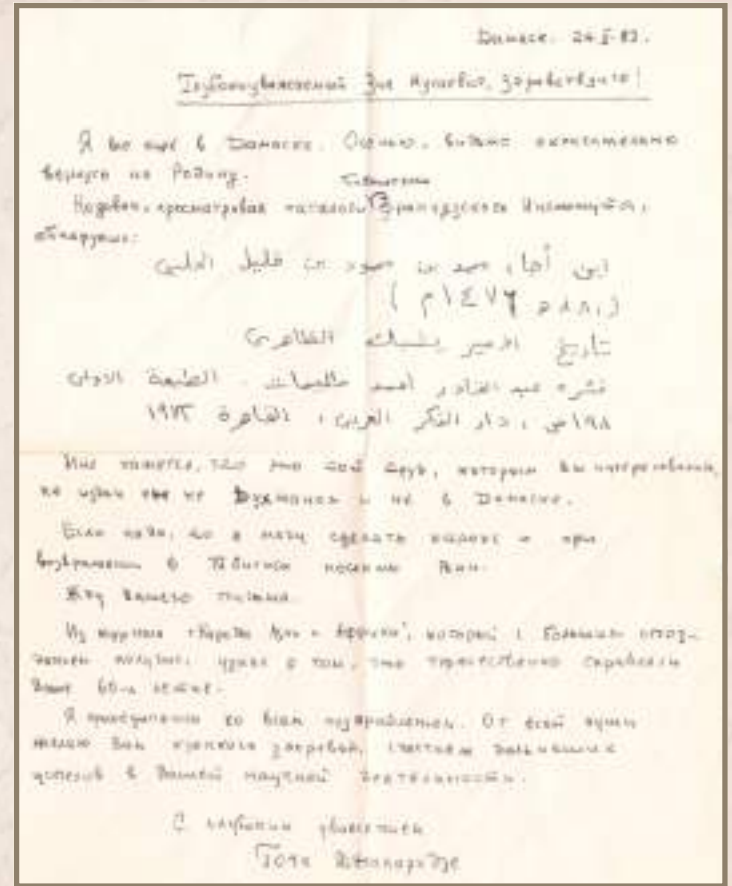 Дамаск. 24.I.83.
Глубокоуважаемый Зия Мусаевич, здравствуйте!
Я все еще в Дамаске. Осенью, видимо окончательно
вернусь на Родину.
библиотеки
Недавно, просматривая каталоги Французского Института,
обнаружил:
ابن أجا، محمد بن محمود بن خليل الحلبي
(٨٨١هـ ١٤٧٦م)
تاريخ الامير يشبك الظاهري
نشره عبد القادر احمد طليمات. الطبعة الاولى
١٩٨ص، دار الفكر العربي، القاهرة ١٩٧٣
Мне кажется, что это сей труд, которым Вы интересовались,
но издан не Дахманом и не в Дамаске.
Если надо, то я могу сделать ксерокс и при
возвращении в Тбилиси послать Вам.
Жду Вашего письма.
Из журнала "Народы Азии и Африки", который с большим опоз-
данием получаю, узнал о том, что торжественно справляли
Ваше 60-и летие.
Я присоединяюсь ко всем поздравлениям. От всей души
желаю Вам крепкого здоровья, счастья дальнейших
успехов в Вашей научной деятельности.
С глубоким уважением
Гоча Джапаридзе